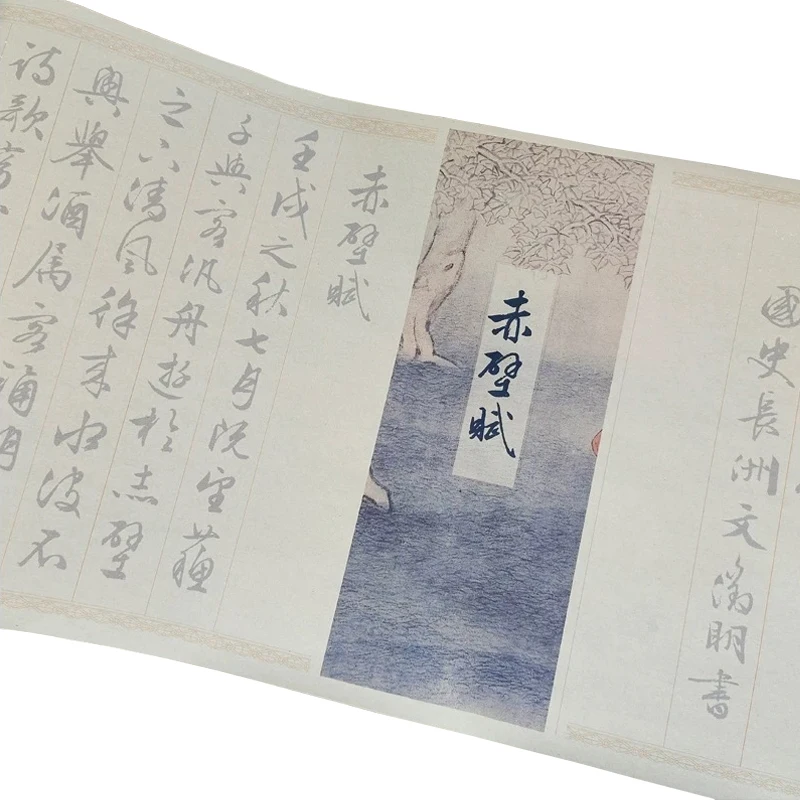 國史長洲文徵明書
赤壁賦
赤壁賦
壬戌之秋七月既望蘇
子與客汎舟遊於赤壁
之下清風徐來水波不
興舉酒属客誦明
詩歌窈